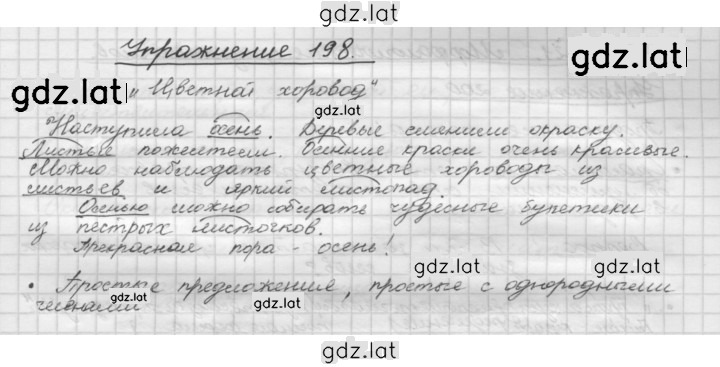 gdz.lat
Упражнение 198.
gdz.lat
gdz.lat
„Цветной хоровод“
gdz.lat
Наступила осень. Деревья сменили окраску.
Листья пожелтели. Осенние краски очень красивые.
Можно наблюдать цветные хороводы из
листьев и яркий листопад.
Осенью можно собирать чудесные букетики
из пёстрых листочков.
Прекрасная пора - осень!
gdz.lat
• Простые предложения, простые с однородными
членами
gdz.lat
gdz.lat
gdz.lat
gdz.lat